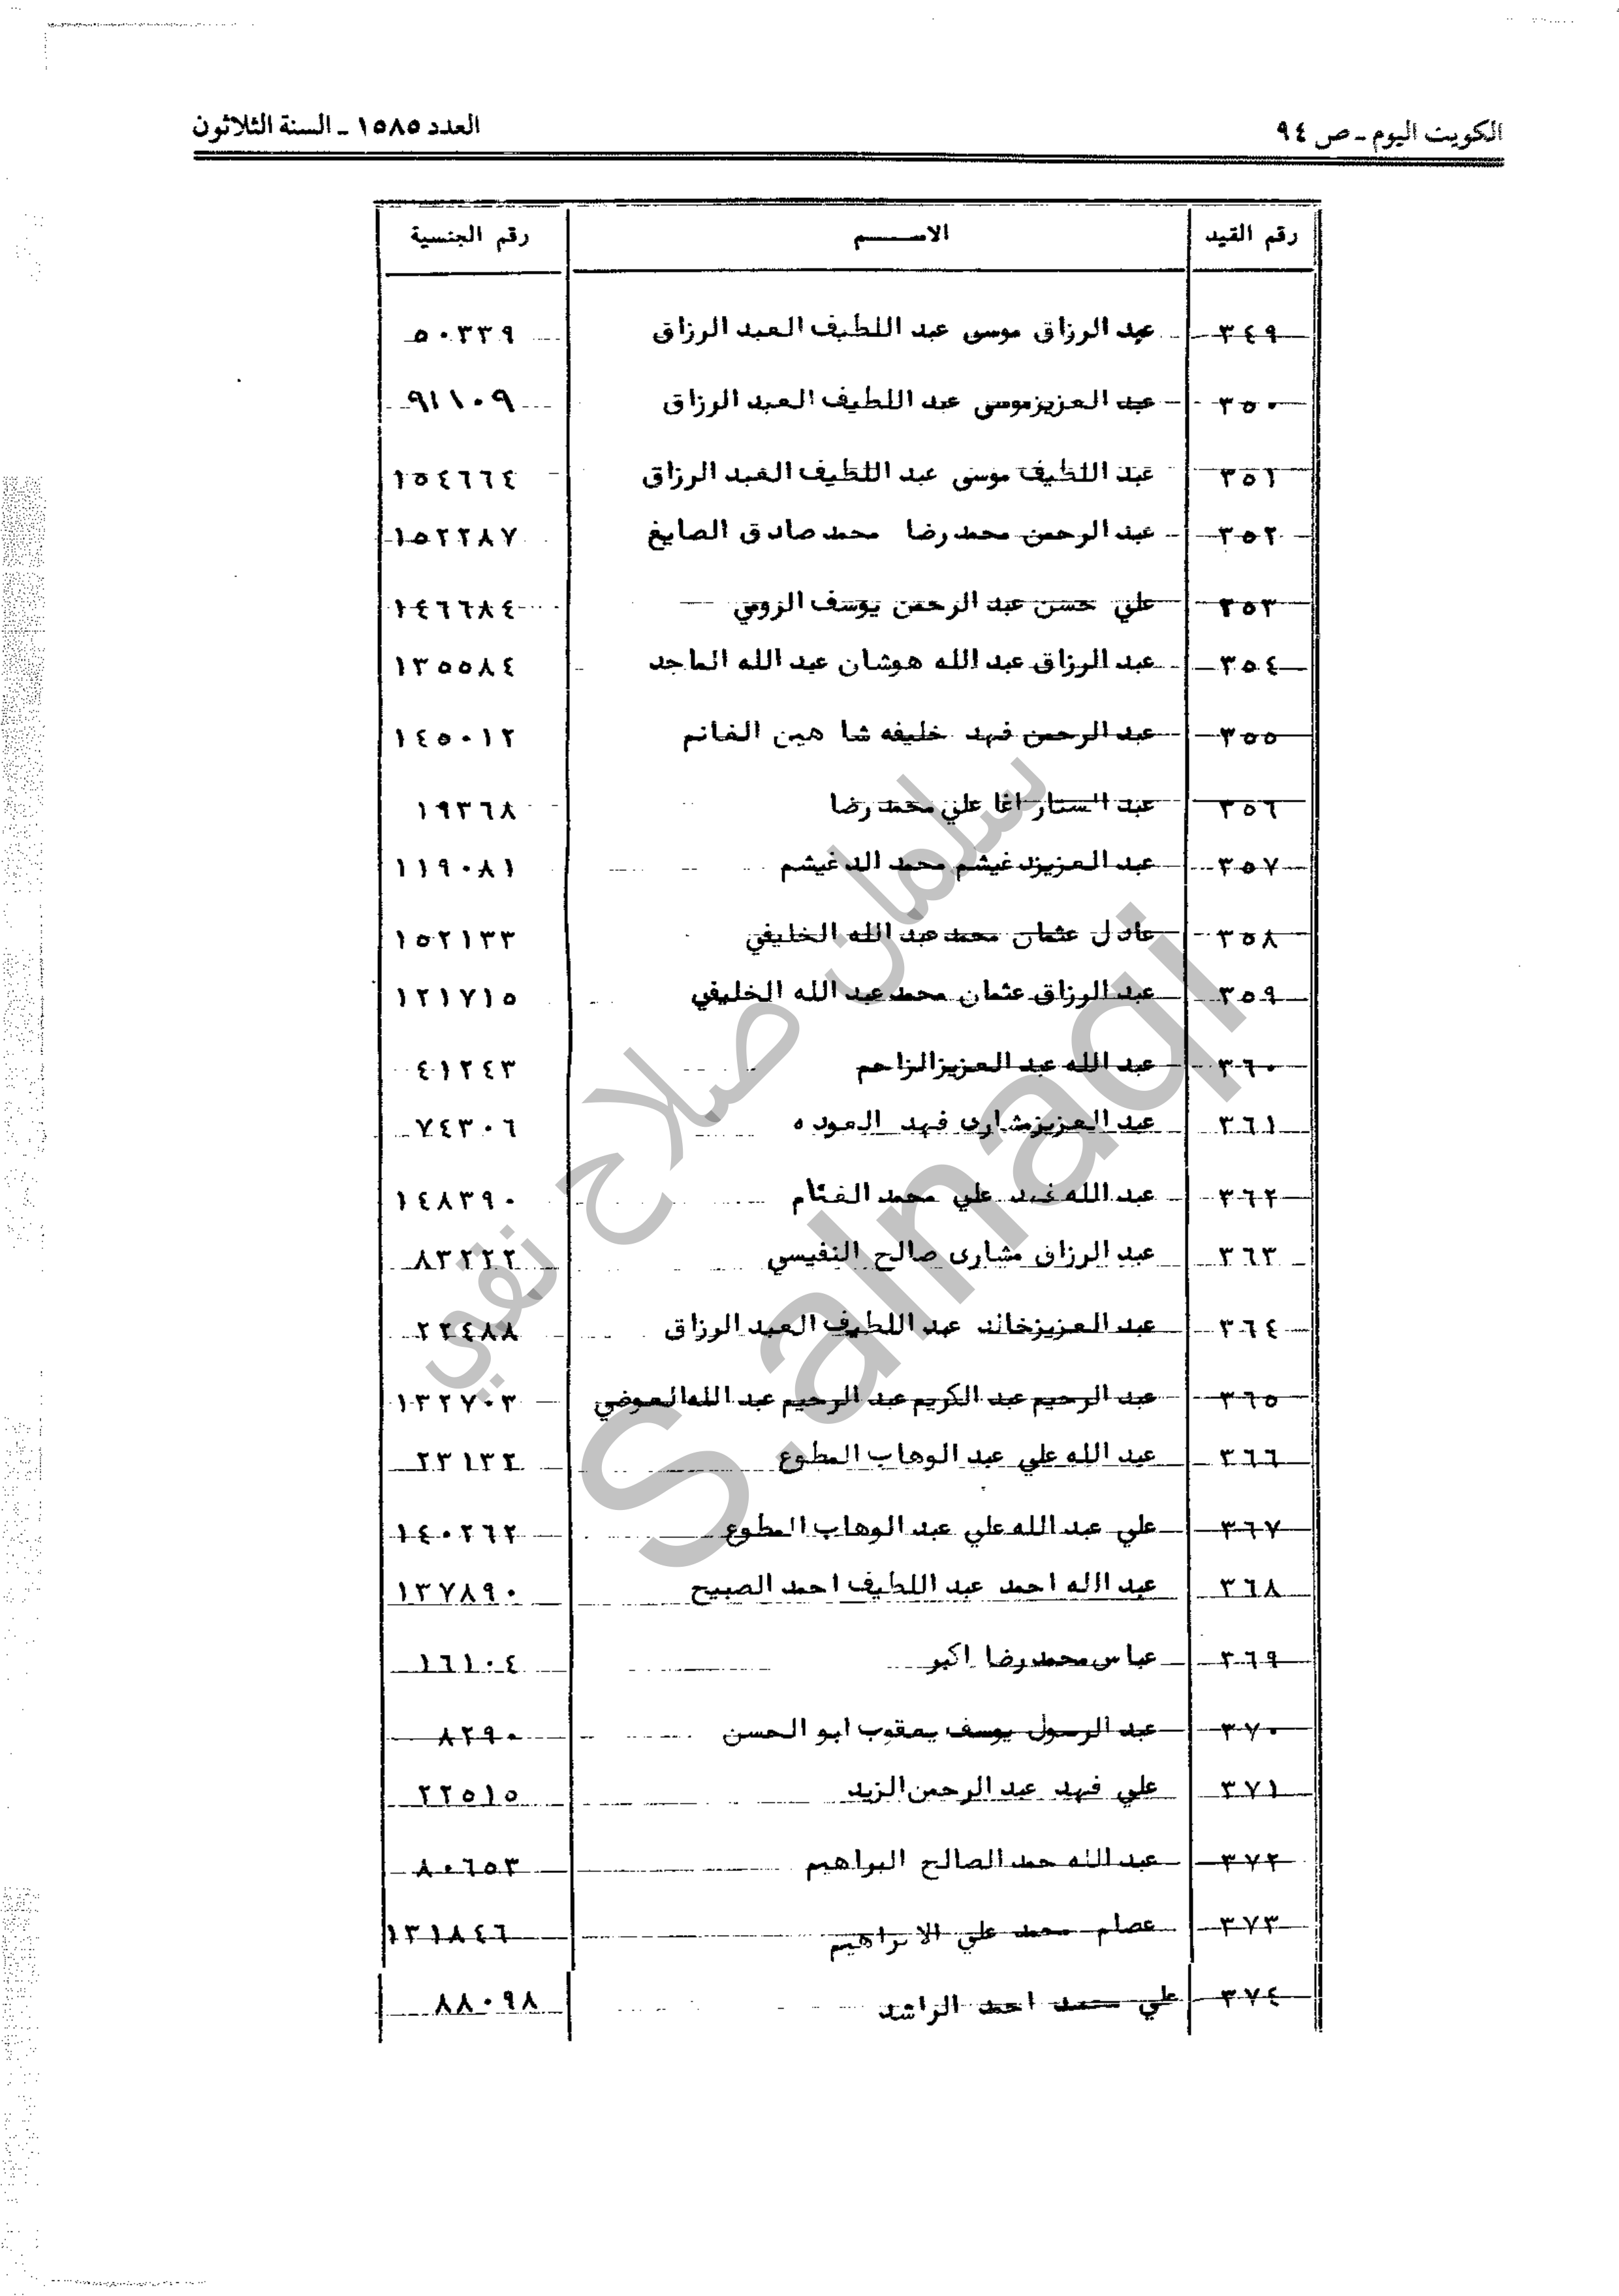 الكويت اليوم ـ ص ٩٤
العدد ١٥٨٥ ـ السنة الثلاثون
رقم القيد الاســـم رقم الجنسية
٣٤٩ عبد الرزاق موسى عبد اللطيف العبد الرزاق ٥٠٣٣٩
٣٥٠ عبد العزيز موسى عبد اللطيف العبد الرزاق ٩١١٠٩
٣٥١ عبد اللطيف موسى عبد اللطيف العبد الرزاق ١٥٤٦٦٤
٣٥٢ عبد الرحمن محمد رضا محمد صادق الصايغ ١٥٢٢٨٧
٣٥٣ علي حسن عبد الرحمن يوسف الرومي ١٤٦٦٨٤
٣٥٤ عبد الرزاق عبد الله هوشان عبد الله الماجد ١٣٥٥٨٤
٣٥٥ عبد الرحمن فهد خليفه شاهين الغانم ١٤٥٠١٢
٣٥٦ عبد الستار اغا علي محمد رضا ١٩٣٦٨
٣٥٧ عبد العزيز دغيشم محمد الدغيشم ١١٩٠٨١
٣٥٨ عادل عثمان محمد عبد الله الخليفي ١٥٢١٣٣
٣٥٩ عبد الرزاق عثمان محمد عبد الله الخليفي ١٢١٧١٥
٣٦٠ عبد الله عبد العزيز الزاحم ٤١٢٤٣
٣٦١ عبد العزيز مشارى فهد العوده ٧٤٣٠٦
٣٦٢ عبد الله علي محمد الغنام ١٤٨٣٩٠
٣٦٣ عبد الرزاق مشارى صالح النفيسي ٨٣٢٢٢
٣٦٤ عبد العزيز خالد عبد اللطيف العبد الرزاق ٢٢٤٨٨
٣٦٥ عبد الرحيم عبد الكريم عبد الرحيم عبد الله العوضي ١٣٢٧٠٣
٣٦٦ عبد الله علي عبد الوهاب المطوع ٢٣١٣٢
٣٦٧ علي عبد الله علي عبد الوهاب المطوع ١٤٠٢٦٢
٣٦٨ عبد الله احمد عبد اللطيف احمد الصبيح ١٣٧٨٩٠
٣٦٩ عباس محمد رضا اكبر ١٦١٠٤
٣٧٠ عبد الرسول يوسف يعقوب ابو الحسن ٨٢٩٠
٣٧١ علي فهد عبد الرحمن الزيد ٢٢٥١٥
٣٧٢ عبد الله حمد الصالح البراهيم ٨٠٦٥٣
٣٧٣ عصام محمد علي الابراهيم ١٣١٨٤٦
٣٧٤ علي احمد الراشد ٨٨٠٩٨
سلمان صلاح نقي
S.alnaqi